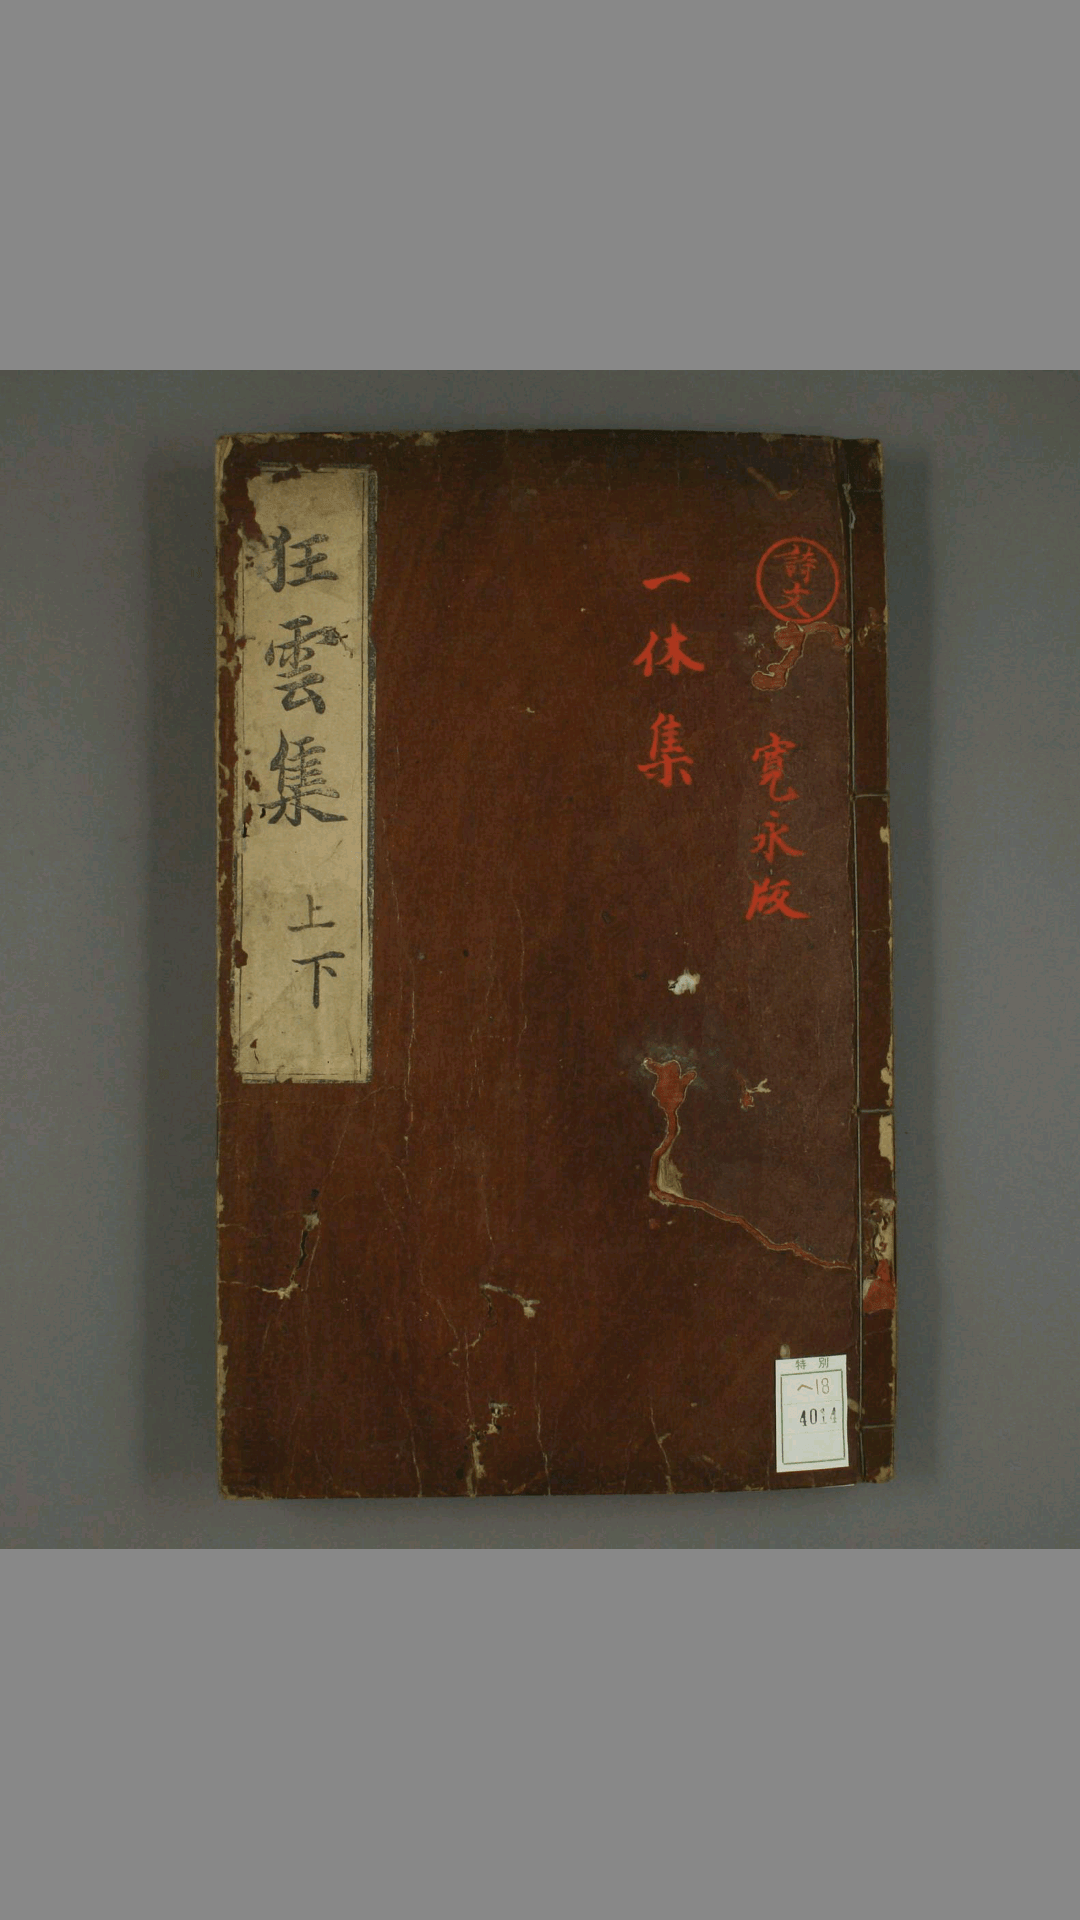 詩文
寛永版
一休集
狂雲集 上下
特別
ヘ18
4014